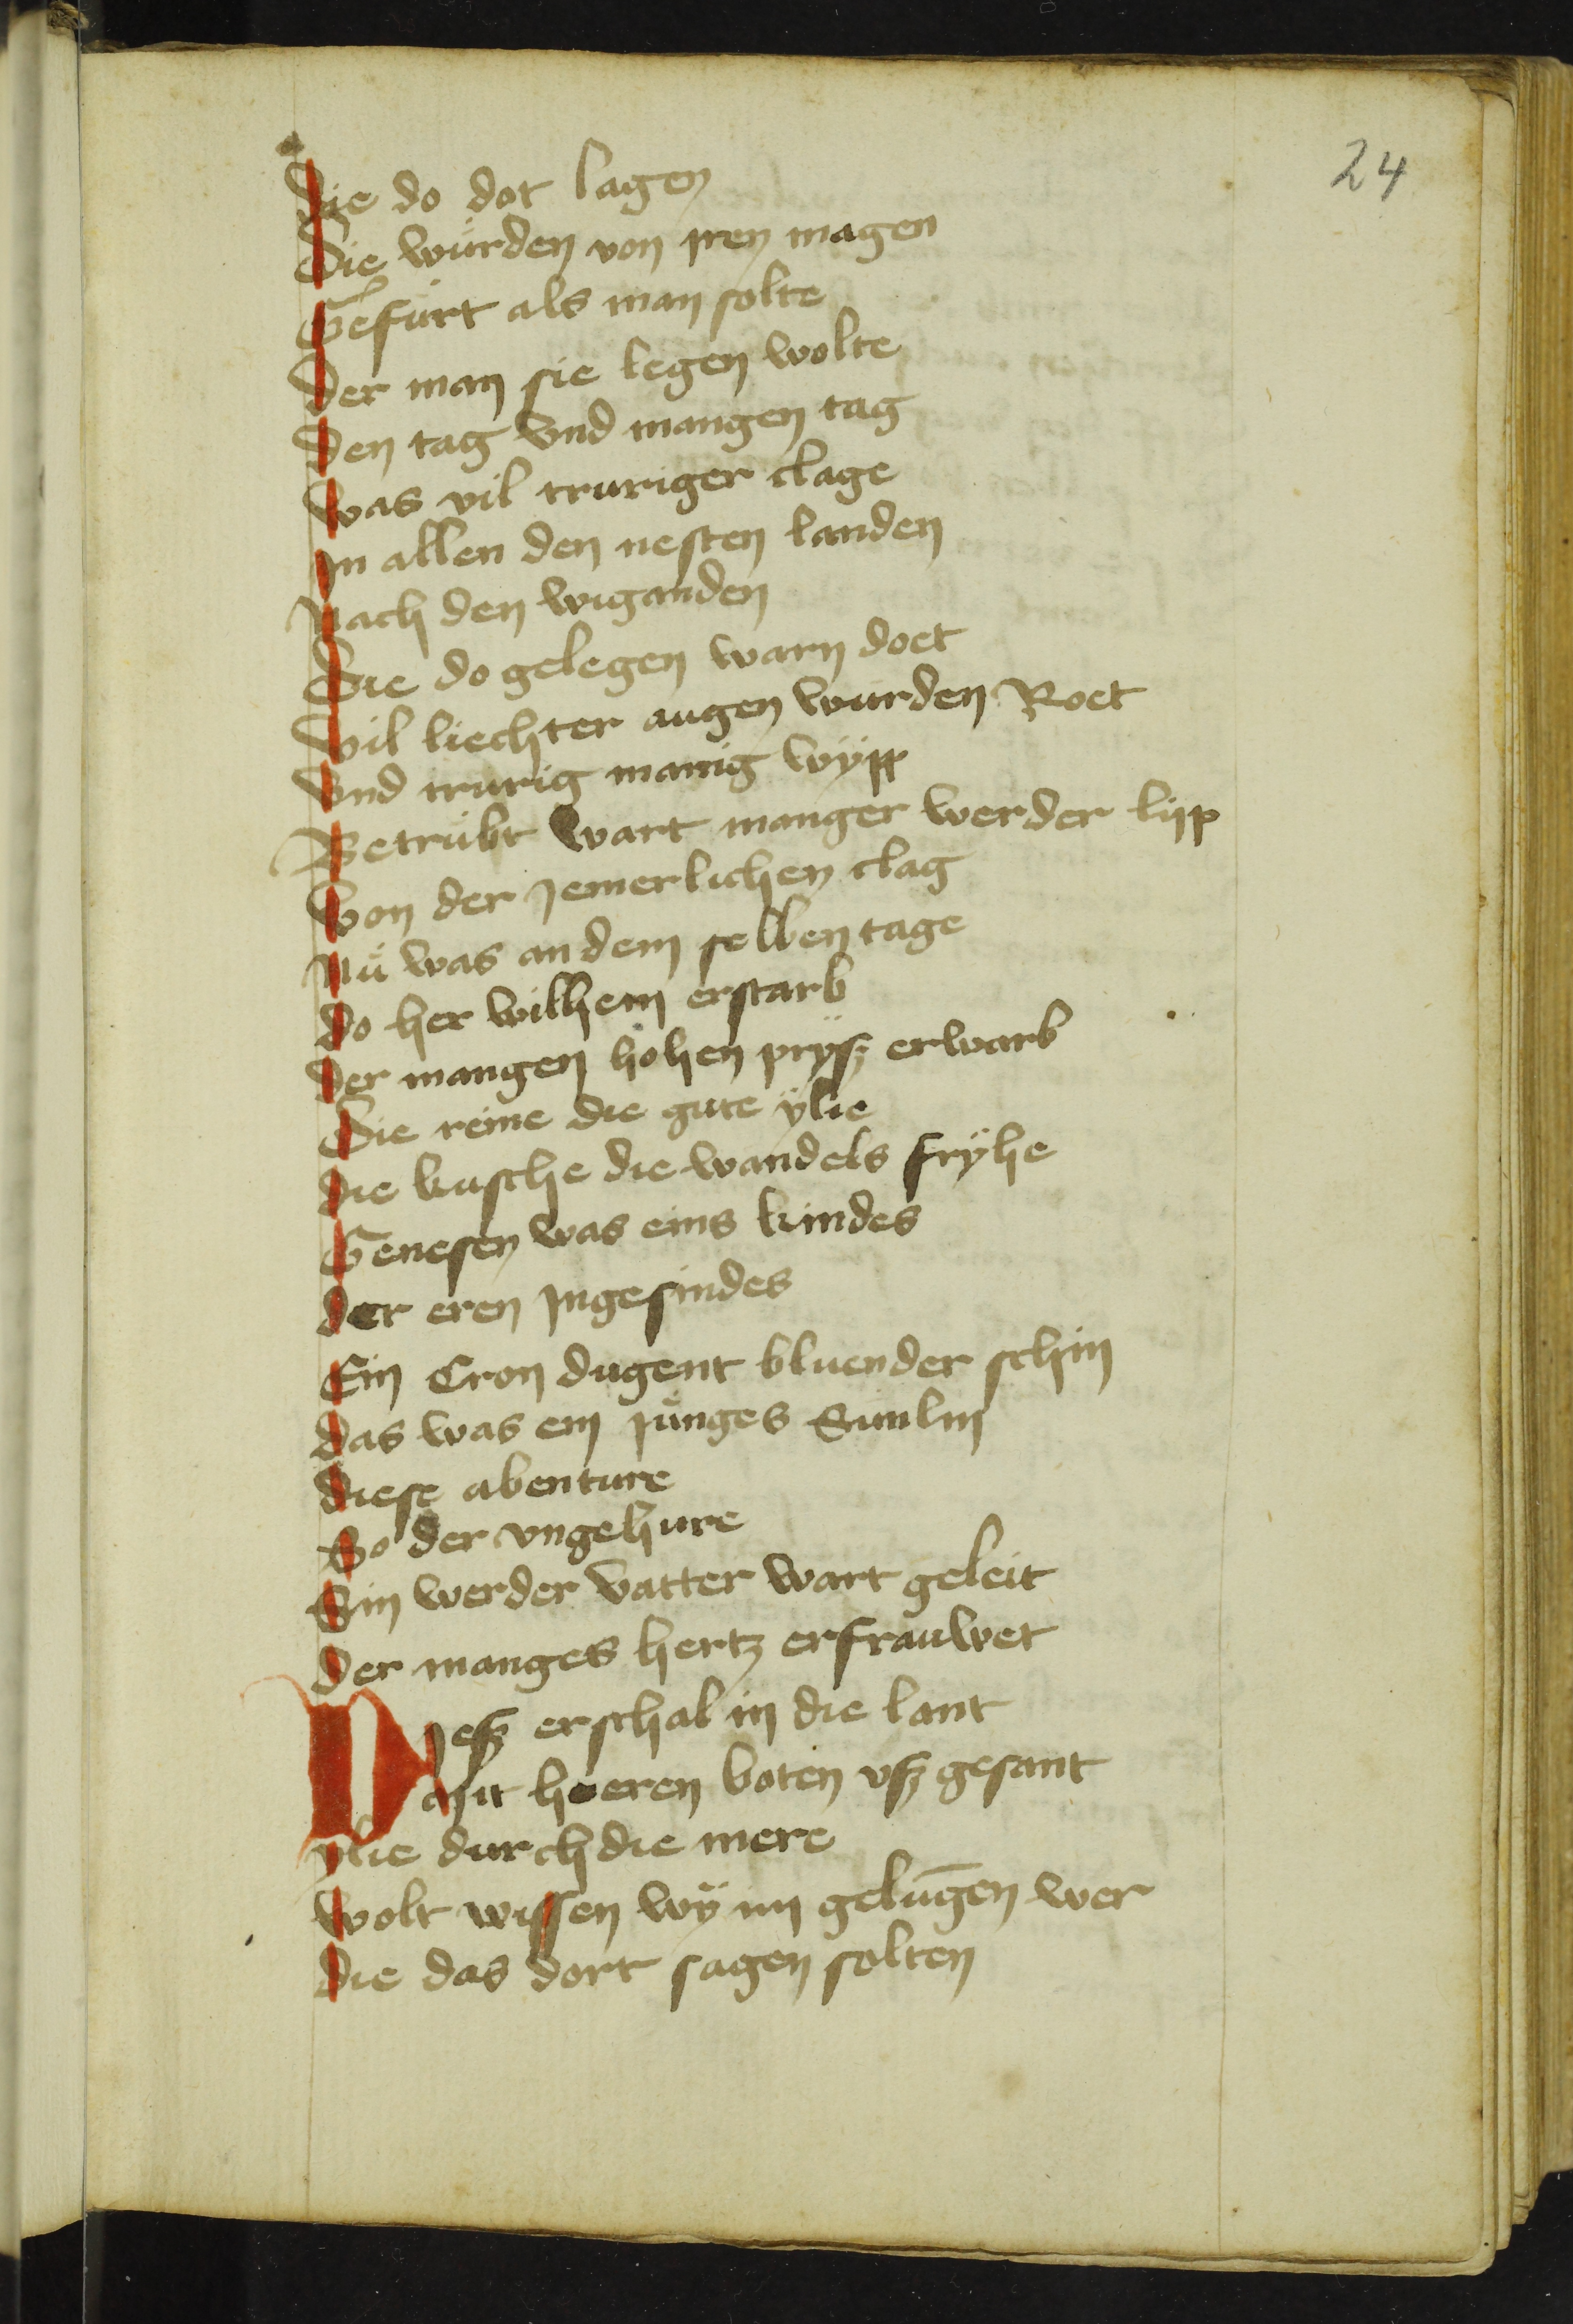 24
Die do dot lagen
Die wurden von iren magen
Gefurt als man solte
Der man sie legen wolte
Den tag vnd mangen tag
Was vil truriger clage
In allen den nesten landen
Nach den wiganden
Die do gelegen warn doet
Vil liechter augen wurden Roet
Vnd trurig manig wÿpp
Betrubt wart manger werder lipp
Von der Jemerlichen clag
Nü was an dem selben tage
Do her wilhem erstarb
Der mangen hohen prÿß erwarb
Die reine die gute ÿlie
Die kusche die wandels frÿhe
Genesen was eins kindes
Der eren Ingesindes
Ein Cron dugent bluender schin
Das was ein junges Sunlin
Diese abenture
So der vngehure
Sin werder vatter wart geleit
Der manges hertz erfrauwet
Dieß erschal in die lant
Mit heren boten vß gesant
ÿlie durch die mere
Wolt wissen wÿ im gelūgen wer
Die das dort sagen solten